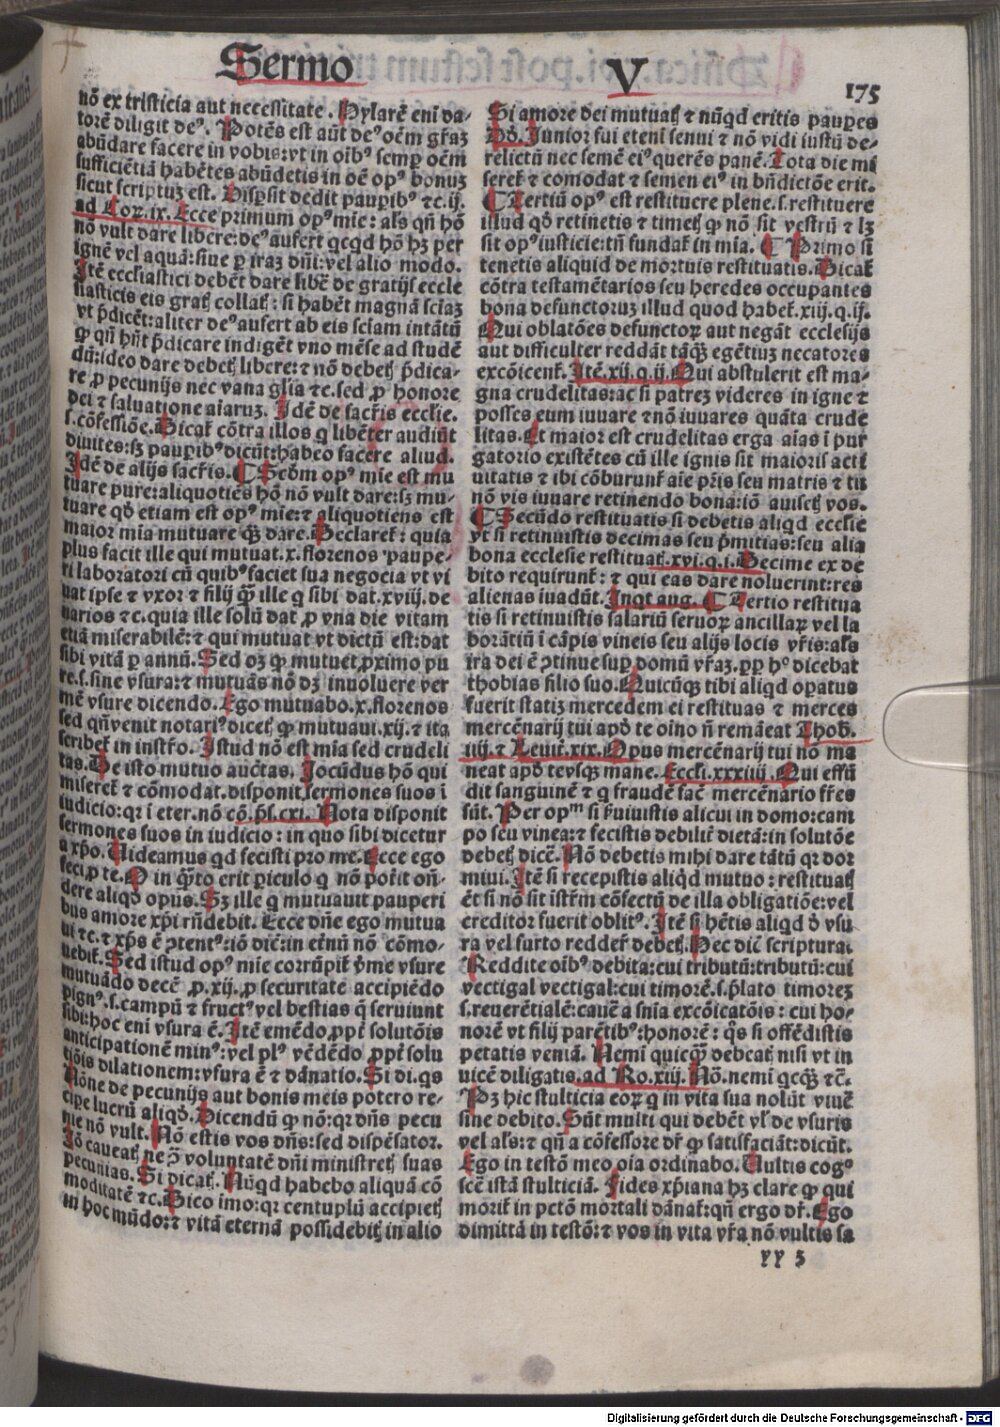 Sermo V 175
nō ex tristicia aut necessitate. Hylarē eni da-
torē diligit deꝰ. Potēs est aūt deꝰ oēm gr̄az
abūdare facere in vobis: vt in oibꝰ semp oēm
sufficiētiā habētes abūdetis in oē opꝰ bonuꝫ
sicut scriptuꝫ est. Dispsit dedit pauꝑibꝰ ⁊c. ij.
ad Coꝝ. ix. Ecce primum opꝰ mie: als qn̄ hō
nō vult dare libere: deꝰ aufert qcqd hō hꝫ per
ignē vel aquā: siue ꝑ iraꝫ dn̄i: vel alio modo.
Itē ecclīastici debēt dare libē de gratijs eccle
siasticis eis gratꝭ collatꝭ: si habēt magnā sciaꝫ
vt p̄dicēt: aliter deꝰ aufert ab eis sciam intātū
ꝙ qn̄ hn̄t p̄dicare indigēt vno mēse ad studē
dū: ideo dare debetꝭ libere: ⁊ nō debetꝭ p̄dica-
re ꝓ pecunijs nec vana glīa ⁊c. sed ꝓ honore
dei ⁊ saluatione aīaruꝫ. Idē de sacr̄is ecclīe.
s. cōfessiōe. Dicat̄ cōtra illos q libēter audiūt
diuites: sꝫ pauꝑibꝰ dicūt: habeo facere aliud.
Idē de alijs sacr̄is. ¶ Scdm opꝰ mie est mu
tuare pure: aliquotiēs hō nō vult dare: sꝫ mu-
tuare qd̄ etiam est opꝰ mie: ⁊ aliquotiens est
maior mia mutuare q̄ꝫ dare. Declaret̄: quia
plus facit ille qui mutuat. x. florenos paupe-
ri laboratori cū quibꝰ faciet sua negocia vt vi
uat ipse ⁊ vxor ⁊ filij q̄ꝫ ille q sibi dat. xviij. de
narios ⁊c. quia ille solū dat ꝓ vna die vitam
etiā miserabilē: ⁊ qui mutuat vt dictū est: dat
sibi vitā ꝑ annū. Sed oꝫ ꝙ mutuet ꝓximo pu
re. s. sine vsura: ⁊ mutuās nō dꝫ inuoluere ver
mē vsure dicendo. Ego mutuabo. x. florenos
sed qn̄ venit notariꝰ dicetꝭ ꝙ mutuaui. xij. ⁊ ita
scribet̄ in instr̄o. Istud nō est mīa sed crudeli
tas. De isto mutuo auctas. Jocūdus hō qui
miseret̄ ⁊ cōmodat. disponit sermones suos ī
iudicio: qr ī eter. nō cō. ps̄. cxi. Nota disponit
sermones suos in iudicio: in quo sibi dicetur
a xp̄o. Uideamus qd fecisti pro me. Ecce ego
feci ꝓ te. O in q̄nto erit ꝑiculo q nō poterit on̄-
dere aliqd̄ opus. Sꝫ ille q mutuauit pauperi
bus amore xp̄i rn̄debit. Ecce dn̄e ego mutua
ui ⁊c. ⁊ xp̄s ē ꝯtentꝰ: iō dic̄: in et̄nū nō cōmo-
uebit̄. Sed istud opꝰ mie corrūpit̄ crīme vsure
mutuādo decē ꝓ. xij. ꝓ securitate accipiēdo
pignꝰ. s. campū ⁊ fructꝰ vel bestias q̄ seruiunt
sibi: hoc eni vsura ē. Itē emēdo ꝓpt̄ solutōis
anticipationē minꝰ: vel plꝰ vēdēdo ꝓpt̄ solu
tiōis dilationem: vsura ē ⁊ dānatio. Si di. qs
Nōne de pecunijs aut bonis meis potero re-
cipe lucrū aliqd̄. Dicendū ꝙ nō: qr dn̄s pecu
nie nō vult. Nō estis vos dn̄s: sed dispēsator.
Iō caueatꝭ ne ꝯ̄ voluntatē dn̄i ministretꝭ suas
pecunias. Si dicatꝭ. Nūqd habebo aliquā cō
moditatē ⁊c. Dico imo: qr centuplū accipietꝭ
in hoc mūdo: ⁊ vitā eternā possidebitꝭ in alio
Si amore dei mutuatꝭ ⁊ nūqd eritis pauꝑes
Dd̄. Junior fui etenī senui ⁊ nō vidi iustū de-
relictū nec semē eiꝰ querēs panē. Tota die mi
seret̄ ⁊ comodat ⁊ semen eiꝰ in bn̄dictōe erit.
¶ Tertiū opꝰ est restituere plene. s. restituere
illud qd̄ retinetis ⁊ timetꝭ ꝙ nō sit vestrū ⁊ lꝫ
sit opꝰ iusticie: tn̄ fundat̄ in mīa. ¶ Primo si
tenetis aliquid de mortuis restituatis. Dicat̄
cōtra testamētarios seu heredes occupantes
bona defunctoruꝫ illud quod habet̄. xiij. q. ij.
Qui oblatōes defunctoꝝ aut negāt ecclesijs
aut difficulter reddāt tāq̄ꝫ egētiuꝫ necatores
excōicent̄. Itē. xij. q. ij. Qui abstulerit est ma-
gna crudelitas: ac si patreꝫ videres in igne ⁊
posses eum iuuare ⁊ nō iuuares quāta crude
litas. Et maior est crudelitas erga aīas ī pur
gatorio existētes cū ille ignis sit maioris acti
uitatis ⁊ ibi cōburunt̄ aīe pr̄is seu matris ⁊ tu
nō vis iuuare retinendo bona: iō auisetꝭ vos.
¶ Secūdo restituatis si debetis aliqd ecclīe
vt si retinuistis decimas seu p̄mitias: seu alia
bona ecclesie restituatꝭ. xvi. q. i. Decime ex de
bito requirunt̄: ⁊ qui eas dare noluerint: res
alienas iuadūt. Inqt aug. ¶ Tertio restitua
tis si retinuistis salariū seruoꝝ ancillaꝝ vel la
borātiū ī cāpis vineis seu alijs locis vr̄is: als
ira dei ē ꝯtinue suꝑ domū vr̄aꝫ. ꝓp hꝰ dicebat
thobias filio suo. Quicūqꝫ tibi aliqd opatus
fuerit statiꝫ mercedem ei restituas ⁊ merces
mercēnarij tui apd̄ te oīno n̄ remāeat Thob.
iiij. ⁊ Leuit̄. xix. Opus mercēnarij tui nō ma
neat apd̄ te vsqꝫ mane. Eccli. xxxiiij. Qui effū
dit sanguinē ⁊ q fraudē fac̄ mercēnario fr̄es
sūt. Per opm si f̄uiuistis alicui in domo: cam
po seu vinea: ⁊ fecistis debilit̄ dietā: in solutōe
debetꝭ dicē. Nō debetis mihi dare tātū qr dor
miui. Itē si recepistis aliqd mutuo: restituatꝭ
et si nō sit istr̄m cōfectū de illa obligatiōe: vel
creditor fuerit oblitꝰ. Itē si hētis aliqd d̄ vsu
ra vel furto redder̄ debetꝭ. Hec dic̄ scriptura.
Reddite oībꝰ debita: cui tributū: tributū: cui
vectigal vectigal: cui timorē. s. p̄lato timoreꝫ
s. reuerētialē: cauē a snīa excōicatōis: cui ho-
norē vt filij parētibꝰ: honorē: qs si offēdistis
petatis veniā. Nemī quicq̄ꝫ debeatꝭ nisi vt in
uicē diligatis. ad Ro. xiij. Nō. nemī qcq̄ꝫ ⁊c.
Pꝫ hic stulticia eoꝝ q in vita sua nolūt viuē
sine debito. Sūt multi qui debēt vl̓ de vsuris
vel als: ⁊ qn̄ a cōfessore dr̄ ꝙ satisfaciāt: dicūt.
Ego in testō meo oīa ordinabo. Uultis cogꝰ
scē istā stulticiā. Fides xp̄iana hꝫ clare ꝙ qui
morit̄ in pctō mortali dānat̄: qn̄ ergo dr̄. Ego
dimittā in testō: ⁊ vos in vita vr̄a nō vultis sa
yy 3
Digitalisierung gefördert durch die Deutsche Forschungsgemeinschaft - DFG